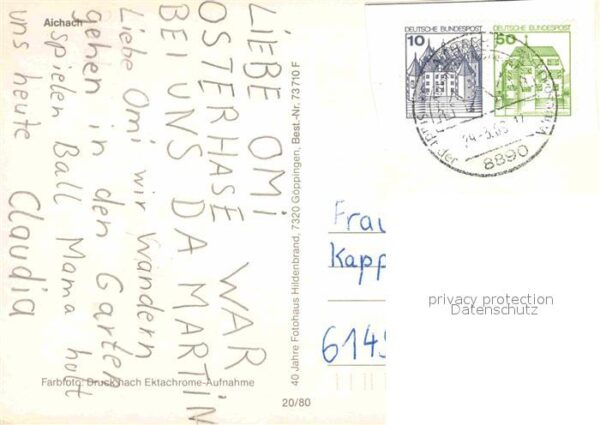 Aichach
LIEBE OMI
OSTERHASE WAR
BEI UNS DA MARTIN
Liebe Omi wir wandern
gehen in den Garten
spielen Ball Mama holt
uns heute Claudia
Farbfoto: Druck nach Ektachrome-Aufnahme
40 Jahre Fotohaus Hildenbrand, 7320 Göppingen, Best.-Nr. 73 710 F
20/80
DEUTSCHE BUNDESPOST
10
DEUTSCHE BUNDESPOST
50
8890
Frau
Kapp
6145
privacy protection
Datenschutz